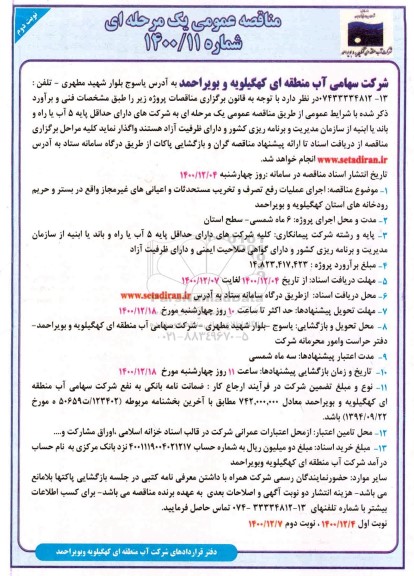 نوبت دوم
مناقصه عمومی یک مرحله ای
شماره ۱۴۰۰/۱۱
شرکت سهامی آب منطقه ای کهگیلویه و بویراحمد
شرکت سهامی آب منطقه ای کهگیلویه و بویراحمد به آدرس یاسوج بلوار شهید مطهری - تلفن :
۱۳-۰۷۴۳۳۳۳۴۸۱۲ در نظر دارد با توجه به قانون برگزاری مناقصات پروژه زیر را طبق مشخصات فنی و برآورد
ذکر شده با شرایط عمومی از طریق مناقصه عمومی یک مرحله ای به شرکت های دارای حداقل پایه ۵ آب یا راه و
باند یا ابنیه از سازمان مدیریت و برنامه ریزی کشور و دارای ظرفیت آزاد هستند واگذار نماید کلیه مراحل برگزاری
مناقصه از دریافت اسناد تا ارائه پیشنهاد مناقصه گران و بازگشایی پاکات از طریق درگاه سامانه ستاد به آدرس
www.setadiran.ir انجام خواهد شد.
تاریخ انتشار اسناد مناقصه در سامانه :روز چهارشنبه ۱۴۰۰/۱۲/۰۴
۱- موضوع مناقصه: اجرای عملیات رفع تصرف و تخریب مستحدثات و اعیانی های غیرمجاز واقع در بستر و حریم
رودخانه های استان کهگیلویه و بویراحمد
۲- مدت و محل اجرای پروژه: ۶ ماه شمسی- سطح استان
۳- پایه و رشته شرکت پیمانکاری: کلیه شرکت های دارای حداقل پایه ۵ آب یا راه و باند یا ابنیه از سازمان
مدیریت و برنامه ریزی کشور و دارای گواهی صلاحیت ایمنی و دارای ظرفیت آزاد
۴- مبلغ برآورد پروژه : ۱۴،۸۲۳،۴۱۷،۴۲۳
۵- مهلت دریافت اسناد: از تاریخ ۱۴۰۰/۱۲/۰۴ لغایت ۱۴۰۰/۱۲/۰۷
۶- محل دریافت اسناد: ازطریق درگاه سامانه ستاد به آدرس www.setadiran.ir
۷- مهلت تحویل پیشنهادها: حد اکثر تا ساعت ۱۰ روز چهارشنبه مورخ ۱۴۰۰/۱۲/۱۸
۸- محل تحویل و بازگشایی: یاسوج -بلوار شهید مطهری - شرکت سهامی آب منطقه ای کهگیلویه و بویراحمد-
دفتر حراست وامور محرمانه شرکت
۰۲۱-۸۸۳۴۹۶۷۰-۵
۹- مدت اعتبار پیشنهادها: سه ماه شمسی
۱۰- تاریخ و زمان بازگشایی پیشنهادها: ساعت ۱۱ روز چهارشنبه مورخ ۱۴۰۰/۱۲/۱۸
۱۱- نوع و مبلغ تضمین شرکت در فرآیند ارجاع کار : ضمانت نامه بانکی به نفع شرکت سهامی آب منطقه
ای کهگیلویه و بویراحمد معادل ۷۴۲،۰۰۰،۰۰۰ مطابق با آخرین بخشنامه مربوطه (۱۲۳۴۰۲/ت۵۰۶۵۹ ه مورخ
۱۳۹۴/۰۹/۲۲) می باشد.
۱۲- محل تامین اعتبار: ازمحل اعتبارات عمرانی شرکت در قالب اسناد خزانه اسلامی ،اوراق مشارکت و....
۱۳- مبلغ خرید اسناد: مبلغ دو میلیون ریال به شماره حساب ۴۰۰۱۱۱۹۰۰۴۰۲۱۲۱۷ نزد بانک مرکزی به نام حساب
درآمد شرکت آب منطقه ای کهگیلویه وبویراحمد
سایر موارد: حضورنمایندگان رسمی شرکت همراه با داشتن معرفی نامه کتبی در جلسه بازگشایی پاکتها بلامانع
می باشد- هزینه انتشار دو نوبت آگهی و اصلاحات بعدی به عهده برنده مناقصه می باشد- برای کسب اطلاعات
بیشتر با شماره تلفنهای ۱۳-۳۳۳۳۴۸۱۲ -۰۷۴ تماس حاصل فرمایید.
نوبت اول ۱۴۰۰/۱۲/۴ ، نوبت دوم ۱۴۰۰/۱۲/۷
دفتر قراردادهای شرکت آب منطقه ای کهگیلویه وبویراحمد